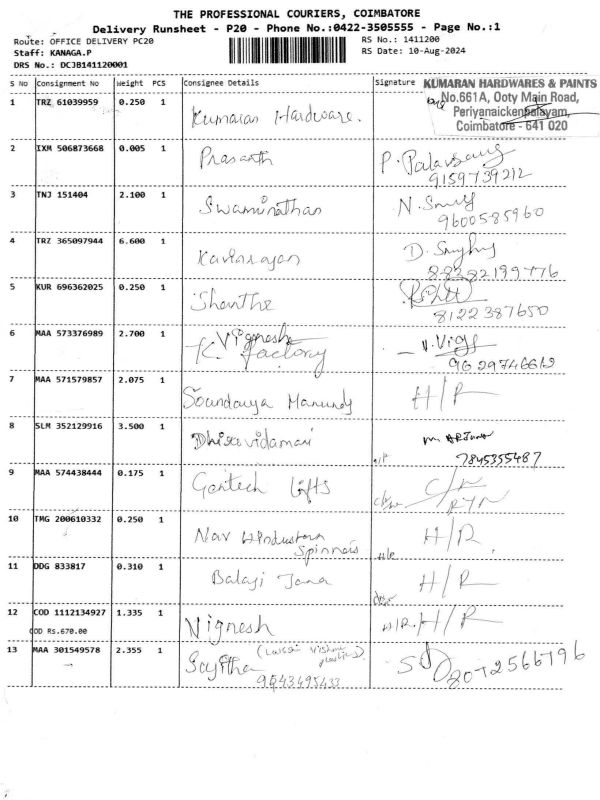 THE PROFESSIONAL COURIERS, COIMBATORE
Delivery Runsheet - P20 - Phone No.:0422-3505555 - Page No.:1
Route: OFFICE DELIVERY PC20
RS No.: 1411200
Staff: KANAGA.P
RS Date: 10-Aug-2024
DRS No.: DCJB141120001
S No Consignment No Weight PCS Consignee Details Signature
KUMARAN HARDWARES & PAINTS
No.661A, Ooty Main Road,
Periyanaickenpalayam,
Coimbatore - 641 020
1 TRZ 61039959 0.250 1 Kumaran Hardware.
2 IXM 506873668 0.005 1 Prasanth
9159739212
3 TNJ 151404 2.100 1 Swaminathan
9600585960
4 TRZ 365097944 6.600 1
88382199776
5 KUR 696362025 0.250 1 Shanthe
8122387650
6 MAA 573376989 2.700 1 Vignesh
K. Factory
9629746612
7 MAA 571579857 2.075 1 Soundarya H/R
8 SLM 352129916 3.500 1
7845355487
9 MAA 574438444 0.175 1 Gentech Lifts
10 TMG 200610332 0.250 1 Nav Hindustan H/R
Spinners
11 DDG 833817 0.310 1 Balaji H/R
12 COD 1112134927 1.335 1 Vignesh H/R. H/R
COD Rs.670.00
13 MAA 301549578 2.355 1 Sajitha
9543495433
8072566796